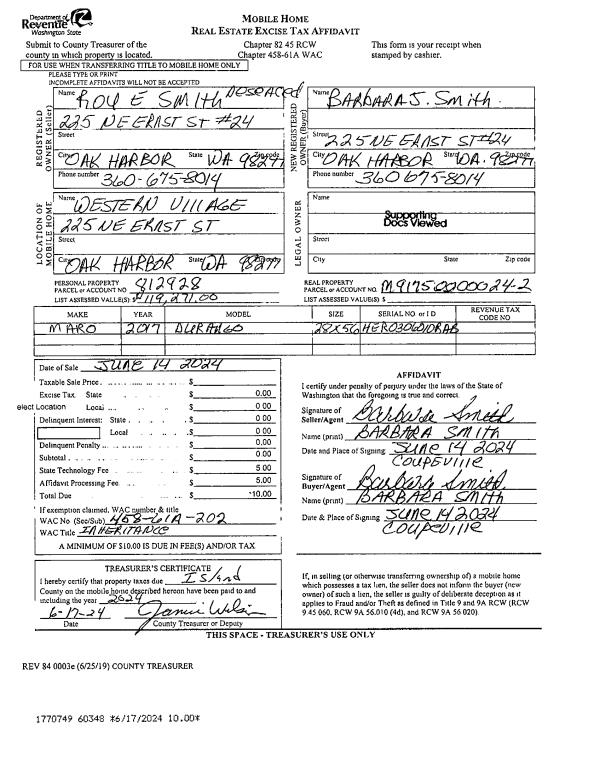 Department of
Revenue
Washington State
MOBILE HOME
REAL ESTATE EXCISE TAX AFFIDAVIT
Submit to County Treasurer of the
county in which property is located.
Chapter 82 45 RCW
Chapter 458-61A WAC
This form is your receipt when
stamped by cashier.
FOR USE WHEN TRANSFERRING TITLE TO MOBILE HOME ONLY
PLEASE TYPE OR PRINT
INCOMPLETE AFFIDAVITS WILL NOT BE ACCEPTED
REGISTERED
OWNER (Seller)
Name ROY E SMITH DESEACED
225 NE ERNST ST #24
Street
City OAK HARBOR State WA Zip code 98277
Phone number 360-675-8014
NEW REGISTERED
OWNER (Buyer)
Name BARBARA J. Smith
Street 225 NE ERNST ST #24
City OAK HARBOR State WA. Zip code 98277
Phone number 360 675-8014
LOCATION OF
MOBILE HOME
Name WESTERN VILLAGE
225 NE ERNST ST
Street
City OAK HARBOR State WA Zip code 98277
LEGAL OWNER
Name
Supporting
Docs Viewed
Street
City State Zip code
PERSONAL PROPERTY
PARCEL or ACCOUNT NO 812928
LIST ASSESSED VALUE $ 119,271.00
REAL PROPERTY
PARCEL or ACCOUNT NO. M917500000024-2
LIST ASSESSED VALUE(S) $
MAKE YEAR MODEL SIZE SERIAL NO or I D REVENUE TAX CODE NO
MARO 2017 DURANGO 28X56
Date of Sale JUNE 14 2024
Taxable Sale Price $
Excise Tax State $ 0.00
elect Location Local $ 0 00
Delinquent Interest: State $ 0 00
Local $ 0 00
Delinquent Penalty $ 0.00
Subtotal $ 0 00
State Technology Fee $ 5 00
Affidavit Processing Fee $ 5.00
Total Due $ 10.00
If exemption claimed, WAC number & title
WAC No (Sec/Sub) 458-61A-202
WAC Title INHERITANCE
A MINIMUM OF $10.00 IS DUE IN FEE(S) AND/OR TAX
AFFIDAVIT
I certify under penalty of perjury under the laws of the State of
Washington that the foregoing is true and correct.
Signature of
Seller/Agent Barbara Smith
Name (print) BARBARA SMITH
Date and Place of Signing JUNE 14 2024
COUPEVILLE
Signature of
Buyer/Agent Barbara Smith
Name (print) BARBARA SMITH
Date & Place of Signing JUNE 14 2024
COUPEVILLE
TREASURER'S CERTIFICATE
I hereby certify that property taxes due Island
County on the mobile home described hereon have been paid to and
including the year 2024
6-17-24 Jamie Wilson
Date County Treasurer or Deputy
If, in selling (or otherwise transferring ownership of) a mobile home
which possesses a tax lien, the seller does not inform the buyer (new
owner) of such a lien, the seller is guilty of deliberate deception as it
applies to Fraud and/or Theft as defined in Title 9 and 9A RCW (RCW
9 45 060, RCW 9A 56.010 (4d), and RCW 9A 56 020).
THIS SPACE - TREASURER'S USE ONLY
REV 84 0003e (6/25/19) COUNTY TREASURER
1770749 60348 *6/17/2024 10.00*